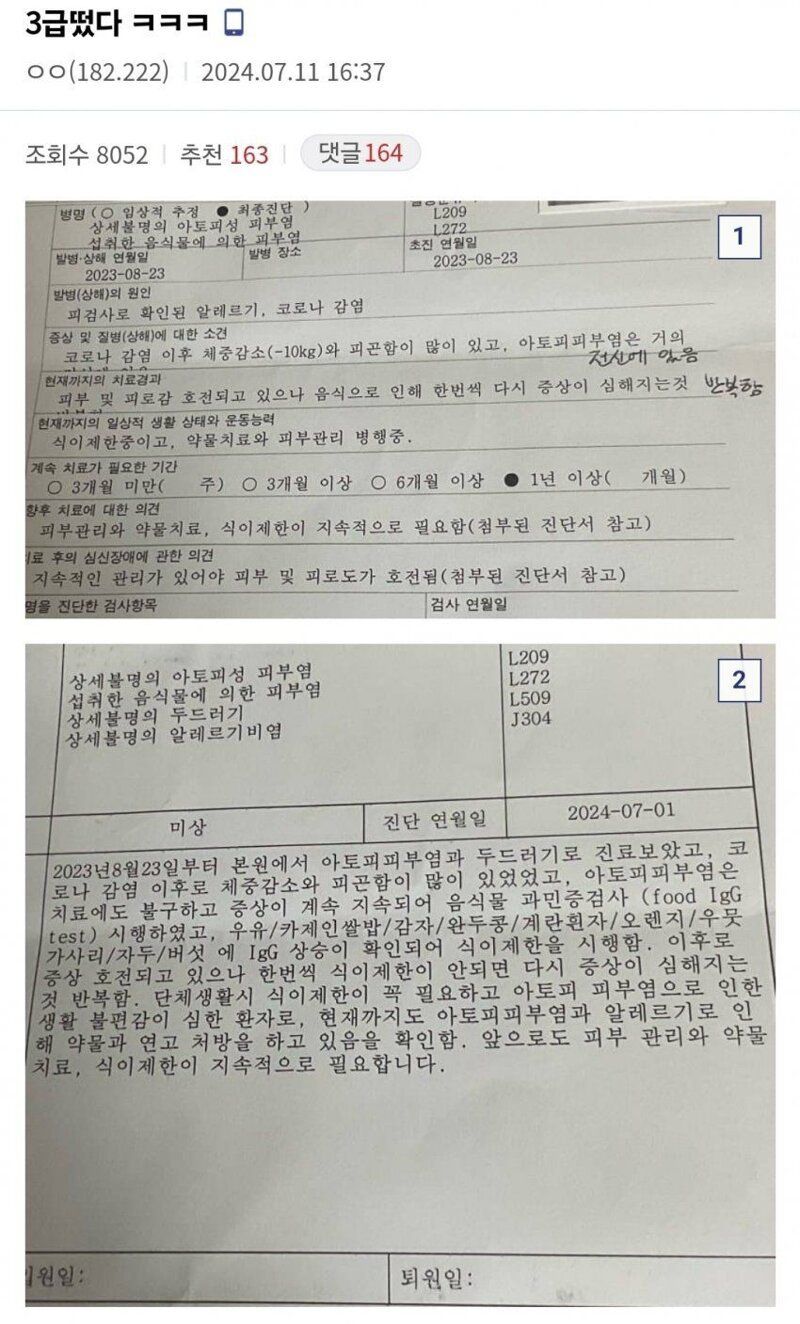 3급떴다 ㅋㅋㅋ
ㅇㅇ(182.222) 2024.07.11 16:37
조회수 8052 추천 163 댓글 164
1
병명 (○ 임상적 추정 ● 최종진단 )
상세불명의 아토피성 피부염 L209
섭취한 음식물에 의한 피부염 L272
발병·상해 연월일 발병 장소 초진 연월일
2023-08-23 2023-08-23
발병(상해)의 원인
피검사로 확인된 알레르기, 코로나 감염
증상 및 질병(상해)에 대한 소견
코로나 감염 이후 체중감소(-10kg)와 피곤함이 많이 있고, 아토피피부염은 거의
전신에 있음
현재까지의 치료경과
피부 및 피로감 호전되고 있으나 음식으로 인해 한번씩 다시 증상이 심해지는것 반복함
현재까지의 일상적 생활 상태와 운동능력
식이제한중이고, 약물치료와 피부관리 병행중.
계속 치료가 필요한 기간
○ 3개월 미만( 주) ○ 3개월 이상 ○ 6개월 이상 ● 1년 이상( 개월)
향후 치료에 대한 의견
피부관리와 약물치료, 식이제한이 지속적으로 필요함(첨부된 진단서 참고)
료 후의 심신장애에 관한 의견
지속적인 관리가 있어야 피부 및 피로도가 호전됨(첨부된 진단서 참고)
명을 진단한 검사항목 검사 연월일
2
상세불명의 아토피성 피부염 L209
섭취한 음식물에 의한 피부염 L272
상세불명의 두드러기 L509
상세불명의 알레르기비염 J304
미상 진단 연월일 2024-07-01
2023년8월23일부터 본원에서 아토피피부염과 두드러기로 진료보았고, 코
로나 감염 이후로 체중감소와 피곤함이 많이 있었었고, 아토피피부염은
치료에도 불구하고 증상이 계속 지속되어 음식물 과민증검사 (food IgG
test) 시행하였고, 우유/카제인쌀밥/감자/완두콩/계란흰자/오렌지/우뭇
가사리/자두/버섯 에 IgG 상승이 확인되어 식이제한을 시행함. 이후로
증상 호전되고 있으나 한번씩 식이제한이 안되면 다시 증상이 심해지는
것 반복함. 단체생활시 식이제한이 꼭 필요하고 아토피 피부염으로 인한
생활 불편감이 심한 환자로, 현재까지도 아토피피부염과 알레르기로 인
해 약물과 연고 처방을 하고 있음을 확인함. 앞으로도 피부 관리와 약물
치료, 식이제한이 지속적으로 필요합니다.
입원일: 퇴원일: